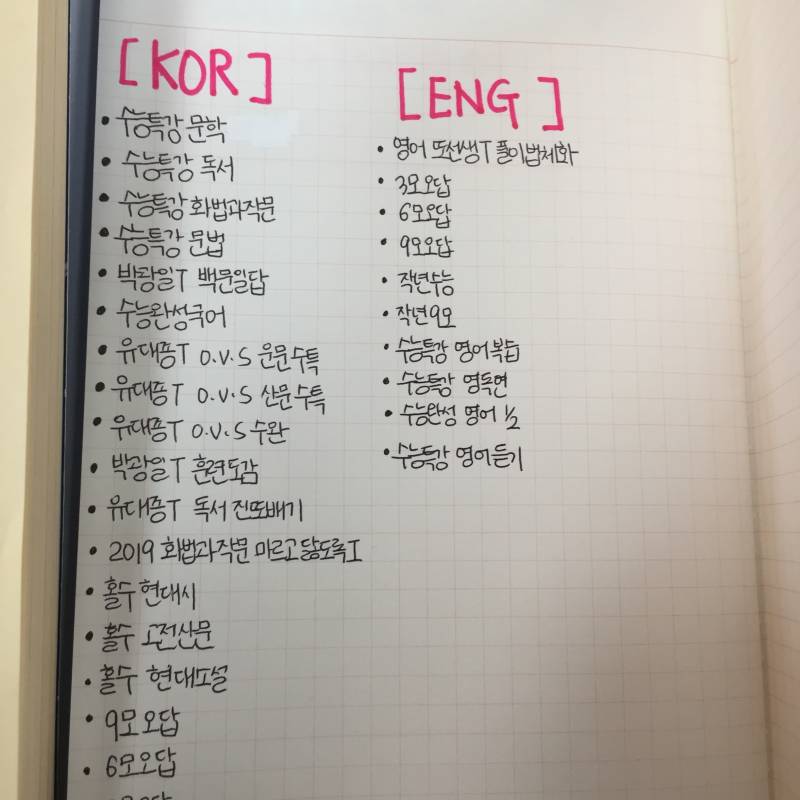 [KOR]
• 수능특강 문학
• 수능특강 독서
• 수능특강 화법과작문
• 수능특강 문법
• 박광일T 백문일답
• 수능완성국어
• 유대종T O.V.S 운문수특
• 유대종T O.V.S 산문수특
• 유대종T O.V.S 수완
• 박광일T 훈련도감
• 유대종T 독서 진또배기
• 2019 화법과작문 마르고 닳도록 I
• 홀수 현대시
• 홀수 고전산문
• 홀수 현대소설
• 9모오답
• 6모오답
[ENG]
• 영어 또선생T 풀이법체화
• 3모오답
• 6모오답
• 9모오답
• 작년수능
• 작년9모
• 수능특강 영어복습
• 수능특강 영독연
• 수능완성 영어 1/2
• 수능특강 영어듣기